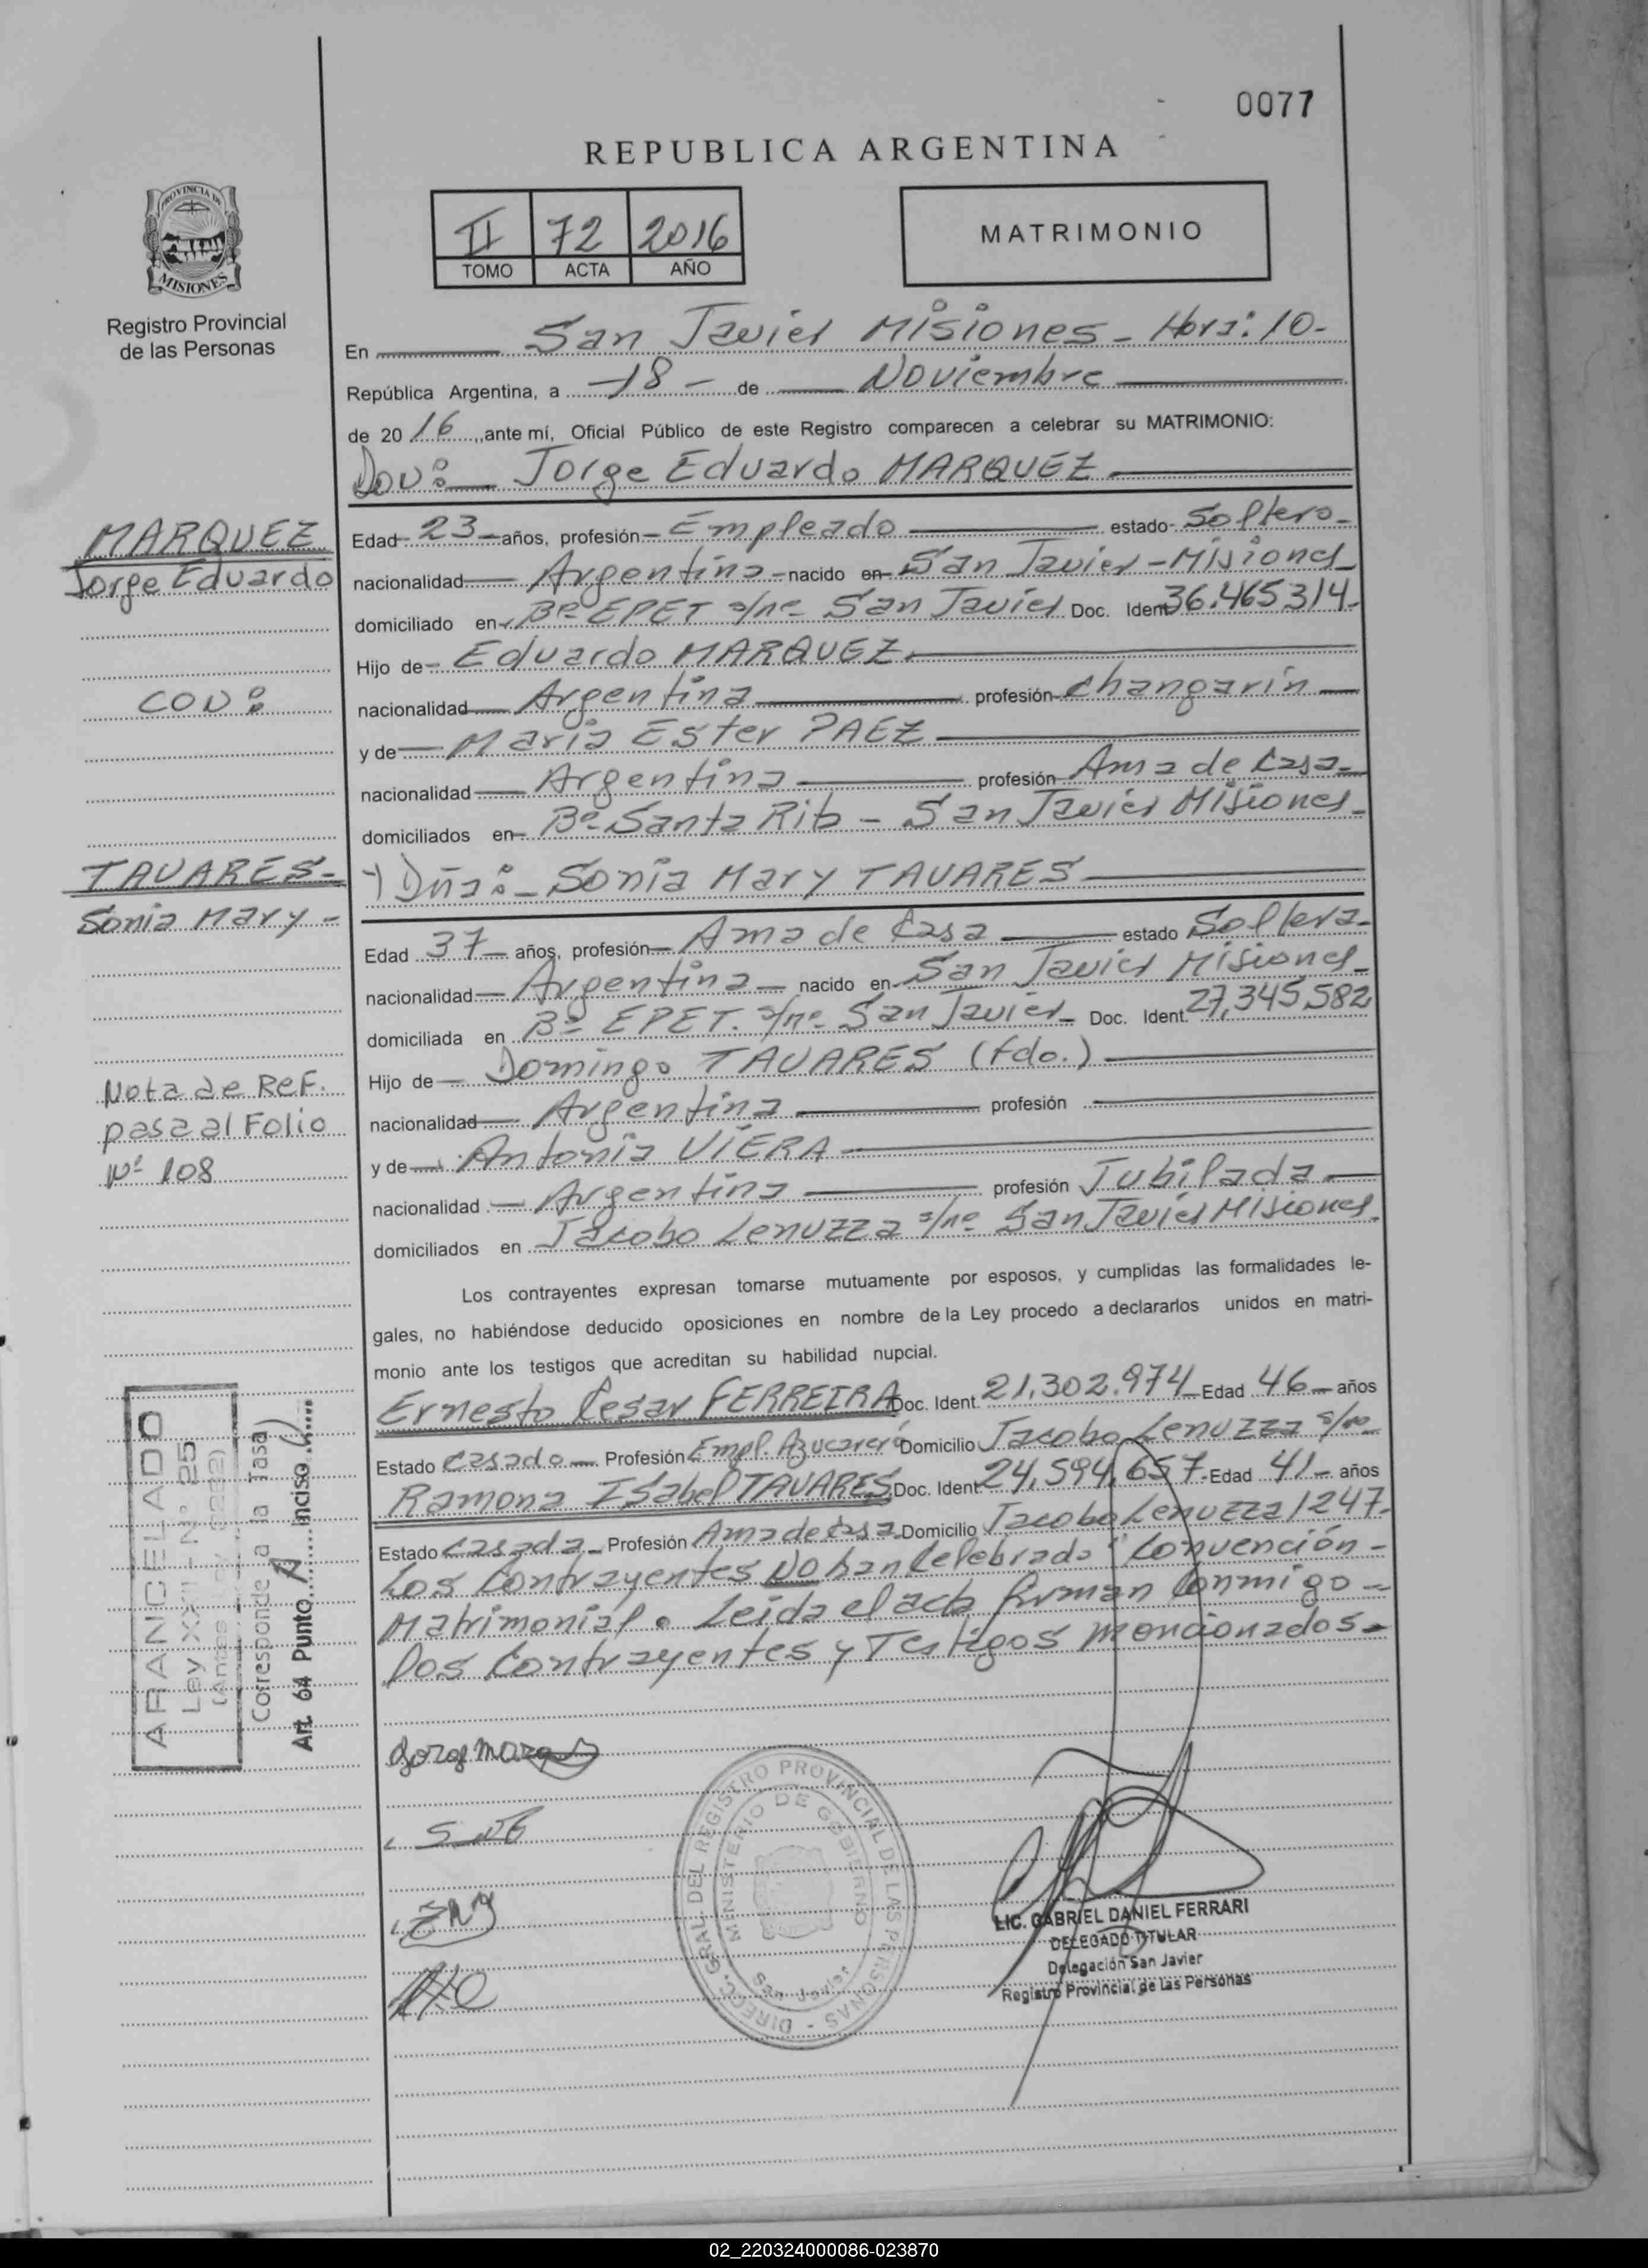 0077
REPUBLICA ARGENTINA
PROVINCIA DE
MISIONES
Registro Provincial
de las Personas
II 72 2016
TOMO ACTA AÑO
MATRIMONIO
En San Javier Misiones - Hora: 10-
República Argentina, a -18- de Noviembre
de 2016, ante mí, Oficial Público de este Registro comparecen a celebrar su MATRIMONIO:
Don: Jorge Eduardo MARQUEZ
MARQUEZ
Jorge Eduardo
con:
TAVARES-
Sonia Mary-
Nota de Ref.
pasa al Folio
Nº 108
Edad 23 años, profesión Empleado estado Soltero-
nacionalidad Argentina - nacido en San Javier - Misiones
domiciliado en Bº EPET s/nº San Javier Doc. Ident 36.465314-
Hijo de Eduardo MARQUEZ
nacionalidad Argentina profesión changarín
y de Maria Ester PAEZ
nacionalidad Argentina profesión Ama de Casa-
domiciliados en Bº Santa Rita - San Javier Misiones-
y Dña:- Sonia Mary TAVARES
Edad 37 años, profesión Ama de Casa estado Soltera-
nacionalidad Argentina - nacido en San Javier Misiones-
domiciliada en Bº EPET. s/nº San Javier - Doc. Ident. 27,345,582
Hijo de Domingo TAVARES (fdo.)
nacionalidad Argentina profesión
y de Antonia VIERA
nacionalidad Argentina profesión Jubilada
domiciliados en Jacobo Lenuzza s/nº San Javier Misiones.
Los contrayentes expresan tomarse mutuamente por esposos, y cumplidas las formalidades le-
gales, no habiéndose deducido oposiciones en nombre de la Ley procedo a declararlos unidos en matri-
monio ante los testigos que acreditan su habilidad nupcial.
Ernesto Cesar FERREIRA Doc. Ident. 21,302.974 Edad 46 años
Estado Casado Profesión Empl. Azucarero Domicilio Jacobo Lenuzza s/nº
Ramona Isabel TAVARES Doc. Ident 24,594,657 - Edad 41 años
Estado Casada - Profesión Ama de Casa Domicilio Jacobo Lenuzza 1247-
Los Contrayentes NO han Celebrado "Convención -
Matrimonial. Leida el acta firman Conmigo -
Los Contrayentes y Testigos mencionados.-
ARANCELADO
Ley XXII - Nº 25
(Antes Ley
Corresponde a la Tasa)
Art. 64 Punto A Inciso
DIRECC. GRAL. DEL REGISTRO PROVINCIAL DE LAS PERSONAS -
MINISTERIO DE GOBIERNO
San Javier
LIC. GABRIEL DANIEL FERRARI
DELEGADO TITULAR
Delegación San Javier
Registro Provincial de las Personas
02_220324000086-023870